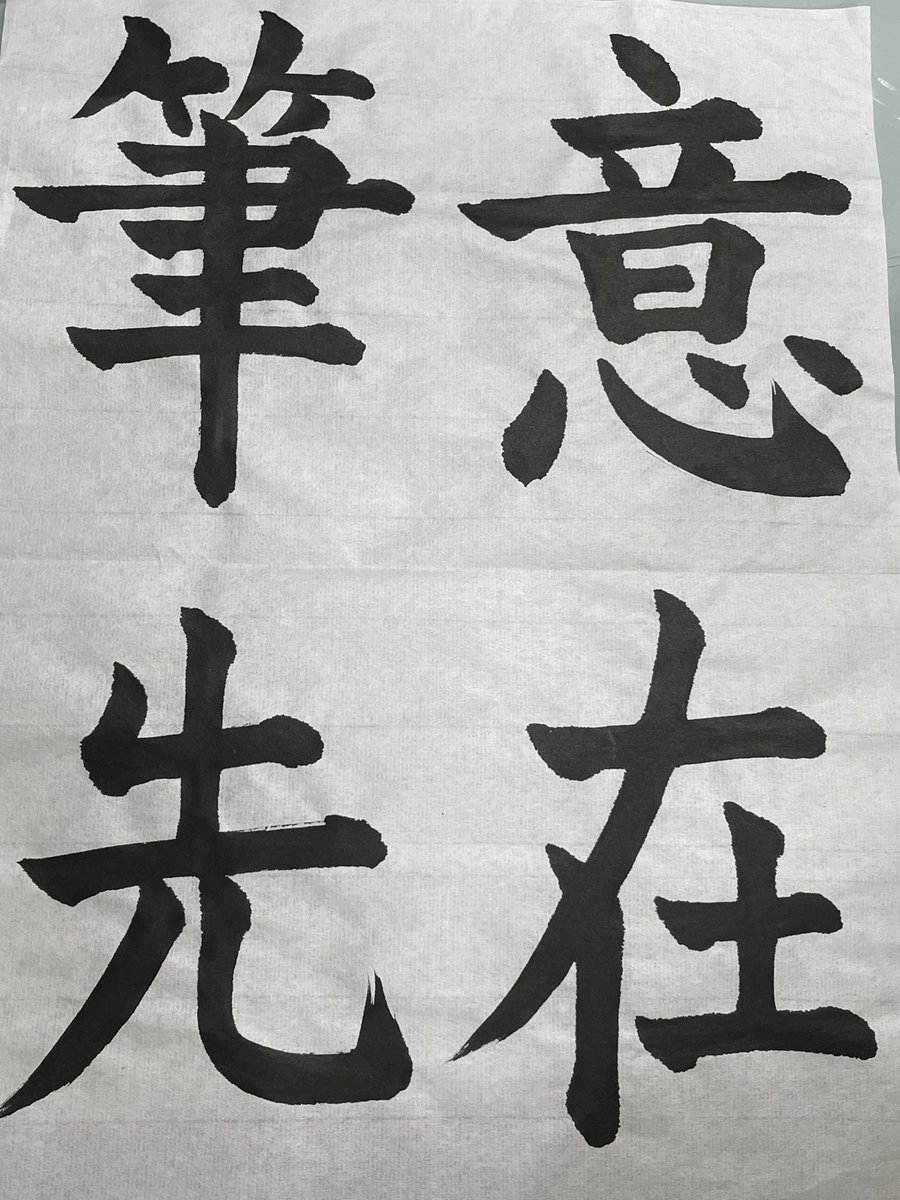 意在
筆先